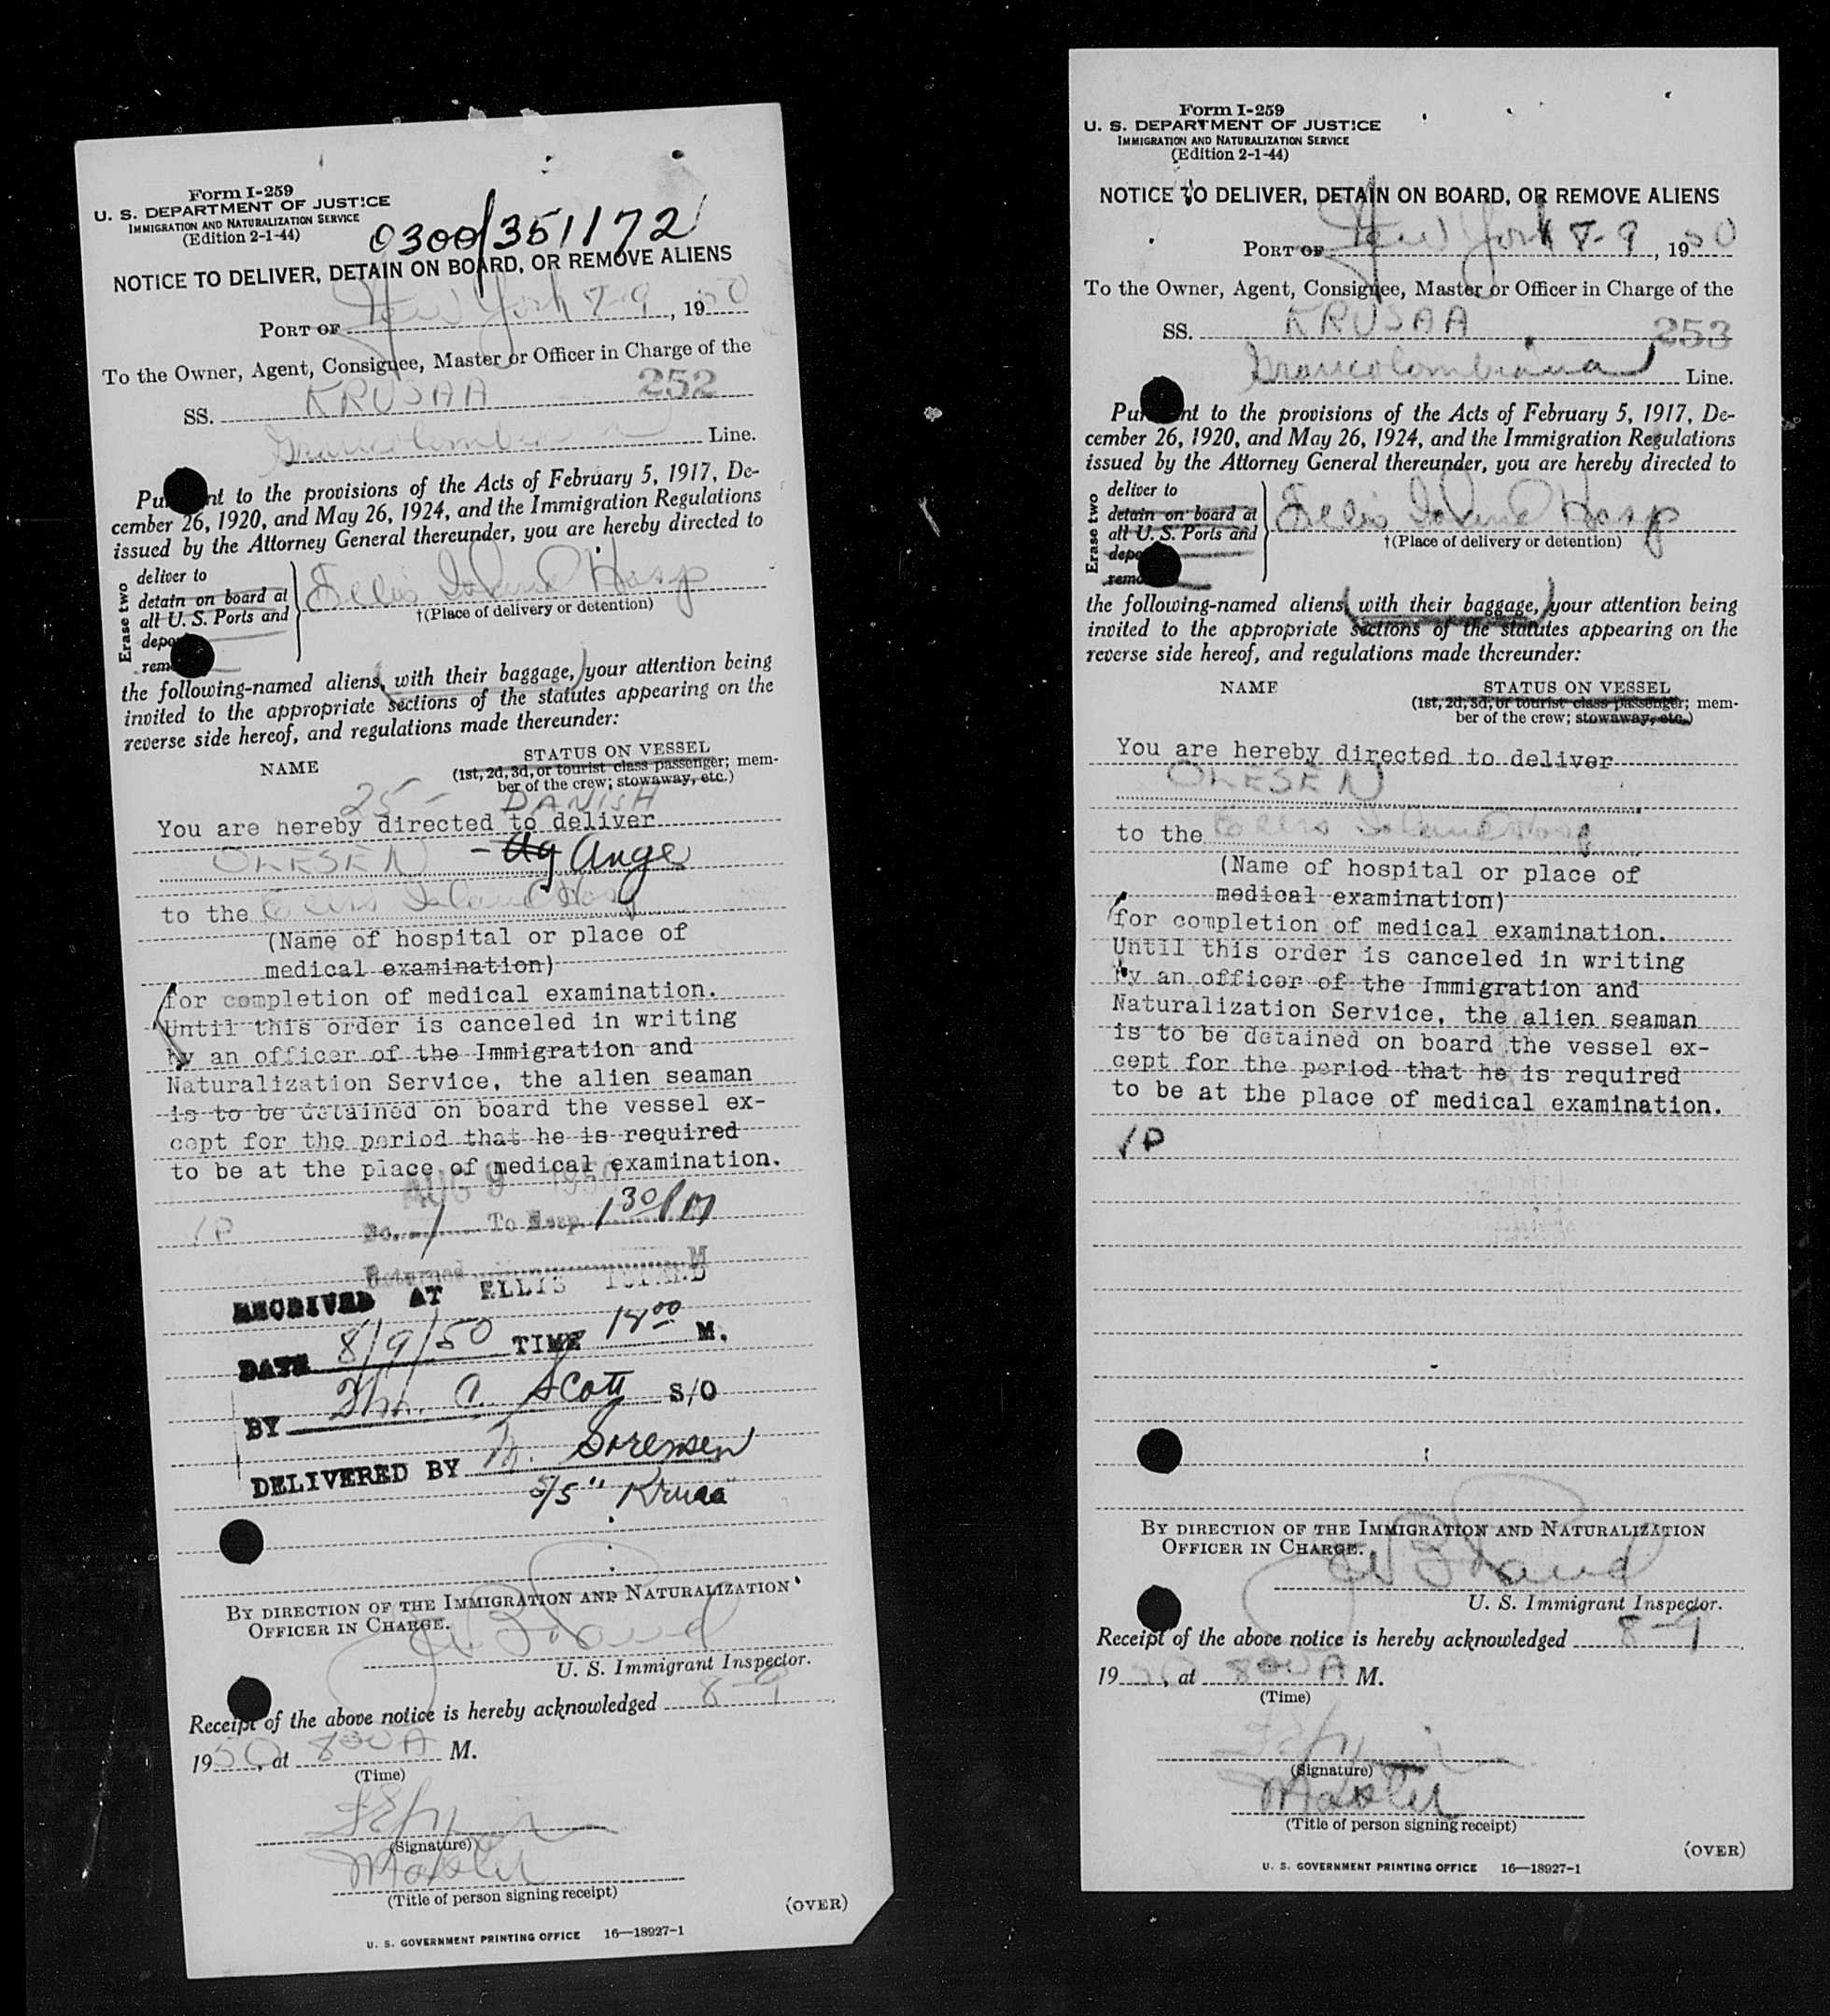 Form I-259
U. S. DEPARTMENT OF JUSTICE
IMMIGRATION AND NATURALIZATION SERVICE
(Edition 2-1-44)
0300/351172
NOTICE TO DELIVER, DETAIN ON BOARD, OR REMOVE ALIENS
PORT OF New York 8-9, 1950
To the Owner, Agent, Consignee, Master or Officer in Charge of the
252
SS. KRUSAA
Grancolombiana Line.
Pu nt to the provisions of the Acts of February 5, 1917, De-
cember 26, 1920, and May 26, 1924, and the Immigration Regulations
issued by the Attorney General thereunder, you are hereby directed to
Erase two
deliver to
detain on board at
all U. S. Ports and
depo
rem
Ellis Island Hosp
†(Place of delivery or detention)
the following-named aliens, with their baggage, your attention being
invited to the appropriate sections of the statutes appearing on the
reverse side hereof, and regulations made thereunder:
NAME STATUS ON VESSEL
(1st, 2d, 3d, or tourist class passenger; mem-
ber of the crew; stowaway, etc.)
25- DANISH
You are hereby directed to deliver
OLESEN - Ag Auge
to the Ellis Island Hosp
(Name of hospital or place of
medical examination)
for completion of medical examination.
Until this order is canceled in writing
by an officer of the Immigration and
Naturalization Service, the alien seaman
is to be detained on board the vessel ex-
cept for the period that he is required
to be at the place of medical examination.
AUG 9 1950
1P No. 1 To Hosp. 1 30 PM
Returned M
RECEIVED AT ELLIS ISLAND
DATE 8/9/50 TIME 14 00 M.
BY Wm. C. Scott S/O
DELIVERED BY Sorensen
S/S "Krusa"
BY DIRECTION OF THE IMMIGRATION AND NATURALIZATION
OFFICER IN CHARGE.
U. S. Immigrant Inspector.
Receipt of the above notice is hereby acknowledged 8-9
1950, at 800 A M.
(Time)
(Signature)
Master
(Title of person signing receipt)
(OVER)
U. S. GOVERNMENT PRINTING OFFICE 16—18927-1
Form I-259
U. S. DEPARTMENT OF JUSTICE
IMMIGRATION AND NATURALIZATION SERVICE
(Edition 2-1-44)
NOTICE TO DELIVER, DETAIN ON BOARD, OR REMOVE ALIENS
PORT OF New York 8-9, 1950
To the Owner, Agent, Consignee, Master or Officer in Charge of the
SS. KRUSAA 253
Grancolombiana Line.
Pu nt to the provisions of the Acts of February 5, 1917, De-
cember 26, 1920, and May 26, 1924, and the Immigration Regulations
issued by the Attorney General thereunder, you are hereby directed to
Erase two
deliver to
detain on board at
all U. S. Ports and
depo
remo
Ellis Island Hosp
†(Place of delivery or detention)
the following-named aliens, with their baggage, your attention being
invited to the appropriate sections of the statutes appearing on the
reverse side hereof, and regulations made thereunder:
NAME STATUS ON VESSEL
(1st, 2d, 3d, or tourist class passenger; mem-
ber of the crew; stowaway, etc.)
You are hereby directed to deliver
OLESEN
to the Ellis Island Hosp
(Name of hospital or place of
medical examination)
for completion of medical examination.
Until this order is canceled in writing
by an officer of the Immigration and
Naturalization Service, the alien seaman
is to be detained on board the vessel ex-
cept for the period that he is required
to be at the place of medical examination.
1P
BY DIRECTION OF THE IMMIGRATION AND NATURALIZATION
OFFICER IN CHARGE.
U. S. Immigrant Inspector.
Receipt of the above notice is hereby acknowledged 8-9
1950, at 800 A M.
(Time)
(Signature)
Master
(Title of person signing receipt)
(OVER)
U. S. GOVERNMENT PRINTING OFFICE 16—18927-1